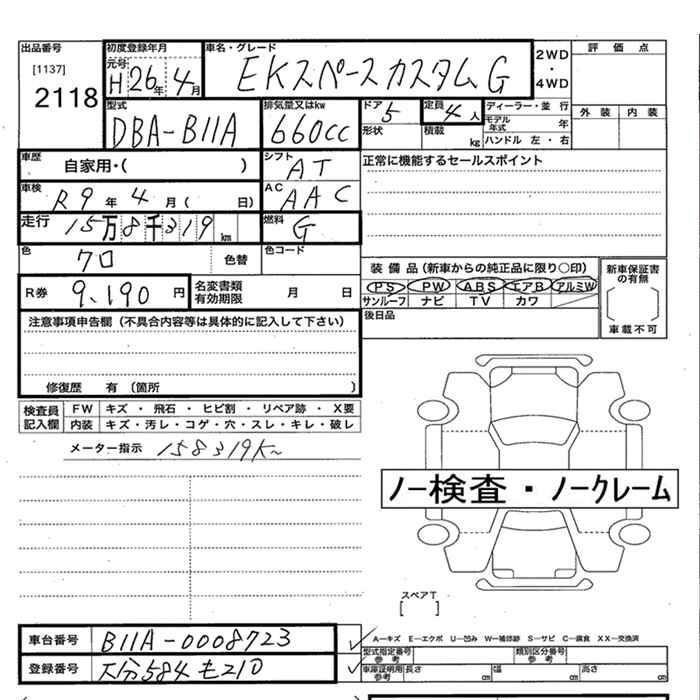 出品番号 初度登録年月 車名・グレード 2WD・4WD 評価点
[1137] 元号 H 26年 4月 EKスペースカスタムG
2118
型式 排気量又はkw ドア 5 定員 4人 ディーラー・並行 外装 内装
DBA-B11A 660cc 形状 積載 kg モデル年式 年
ハンドル 左・右
車歴 自家用・( ) シフト AT 正常に機能するセールスポイント
車検 R9年 4月( 日) AC AAC
走行 15万8千319km 燃料 G
色 クロ 色替 色コード
装備品(新車からの純正品に限り○印) 新車保証書の有無
R券 9,190円 名変書類有効期限 月 日 PS PW ABS エアB アルミW
サンルーフ ナビ TV カワ
車載不可
注意事項申告欄(不具合内容等は具体的に記入して下さい) 後日品
修復歴 有(箇所 )
検査員記入欄 FW キズ・飛石・ヒビ割・リペア跡・X要
内装 キズ・汚レ・コゲ・穴・スレ・キレ・破レ
メーター指示 158319K~
ノー検査・ノークレーム
スペアT
[ ]
車台番号 B11A-0008723 A-キズ E-エクボ U-凹み W-補修跡 S-サビ C-腐食 XX-交換済
型式指定番号参考 類別区分番号参考
登録番号 大分584 も210 車庫証明用参考 長さ cm 幅 cm 高さ cm